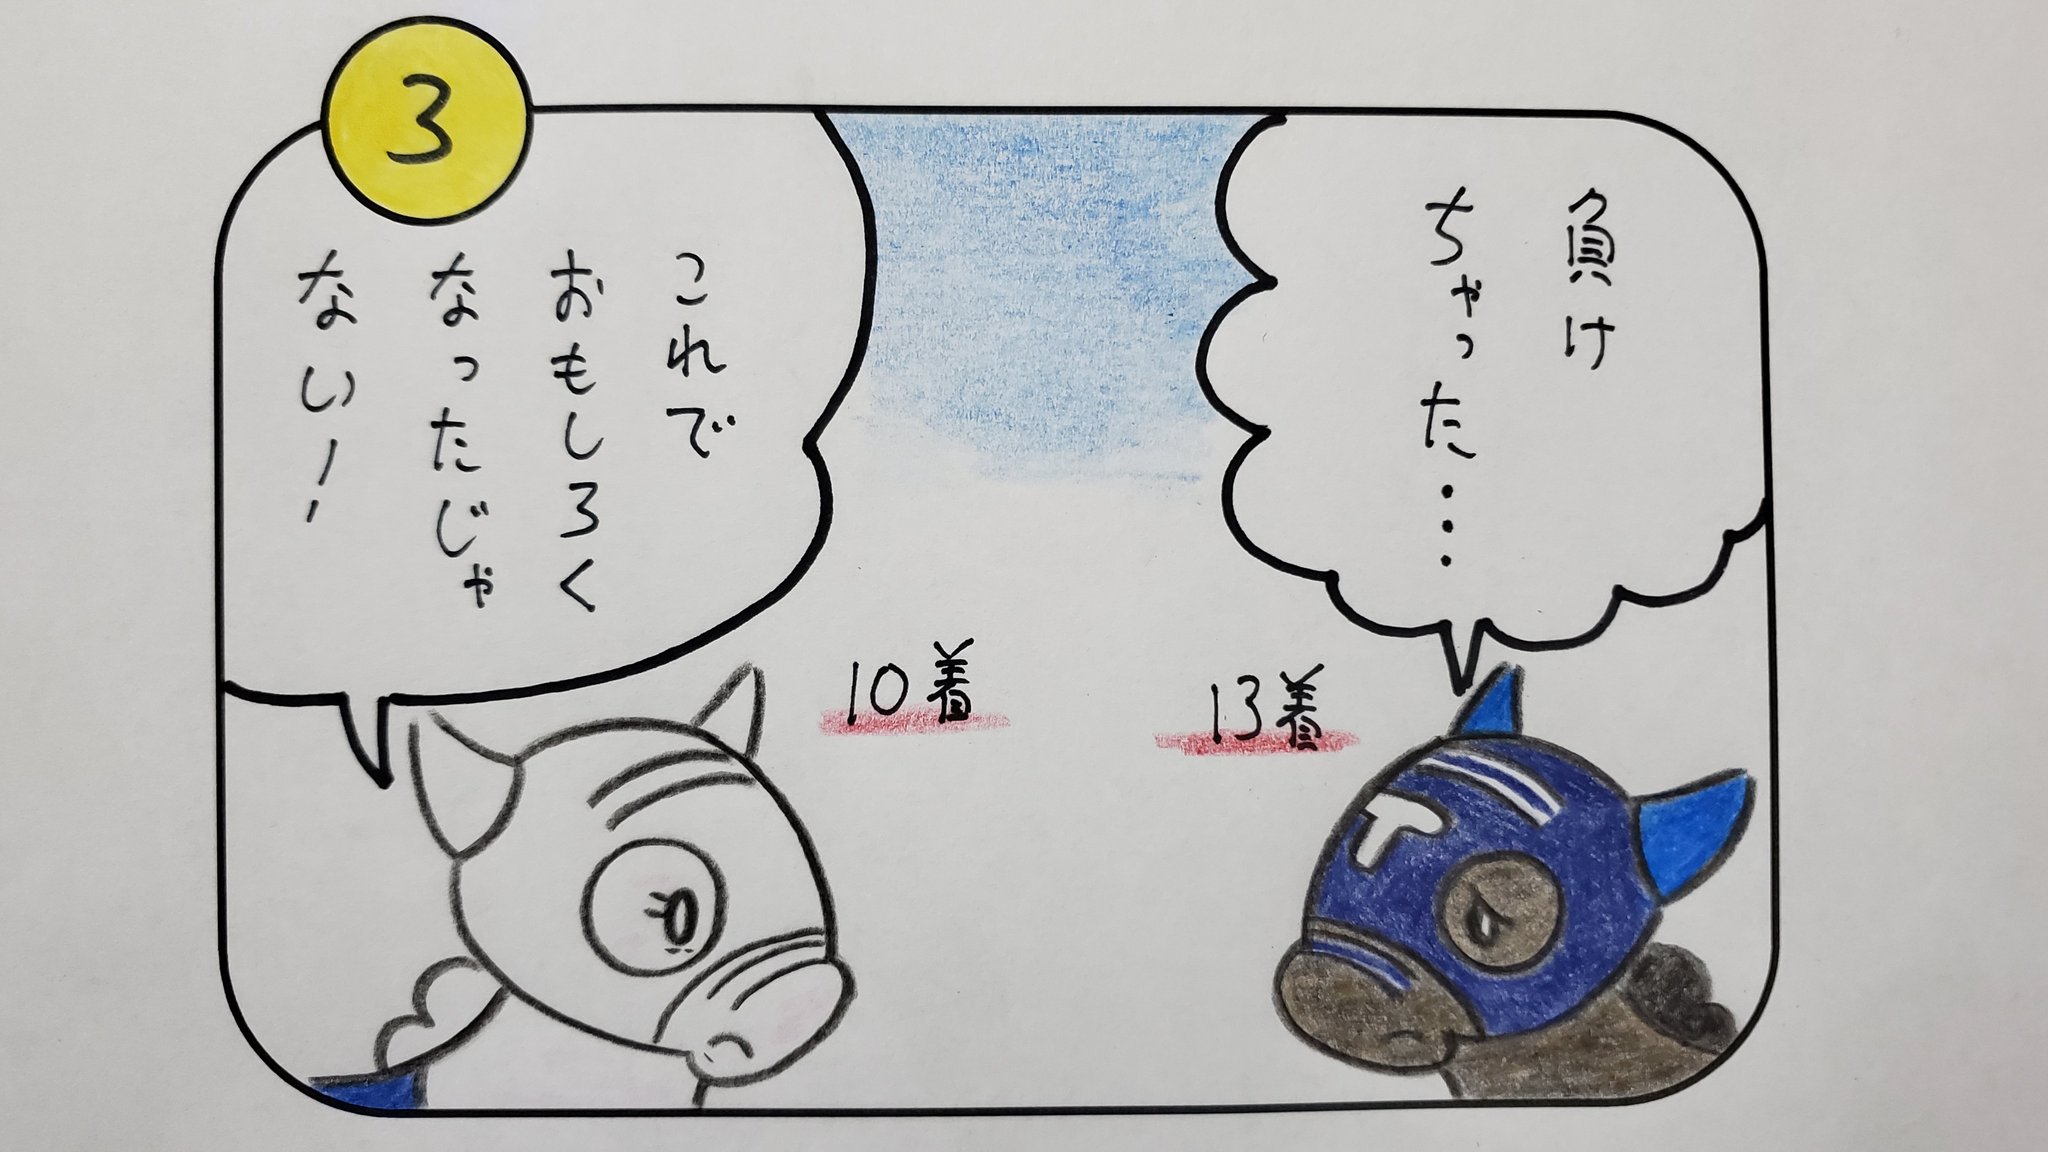 3
負け
ちゃった・・・
これで
おもしろく
なったじゃ
ない!
13着
10着